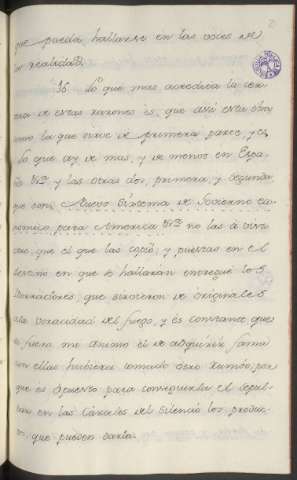 que pueda hallarse en las voces de
su realidad.
36. Lo que mas acredita la cer
teza de estas razones es, que assi esta obra
como la que sirve de primera parte, y es
lo que ay de mas, y de menos en Espa
ña &ra y las otras dos, primera, y segunda
que son, Nuevo Sistema de Govierno Eco
nomico para America &ra no las à visto
otro, que el que las copiò, y puestas en el
en que se hallaran entregue lo s
borradores, que sirvieron de originales
a la voracidad del fuego, y es constante que si
si fuera me animo el de adquirir fama
con ellas huviera tomado otro rumbo, por
que es opuesto para conseguirla el sepul
tar en las Carceles del Silencio los produc
tos, que pueden darla.